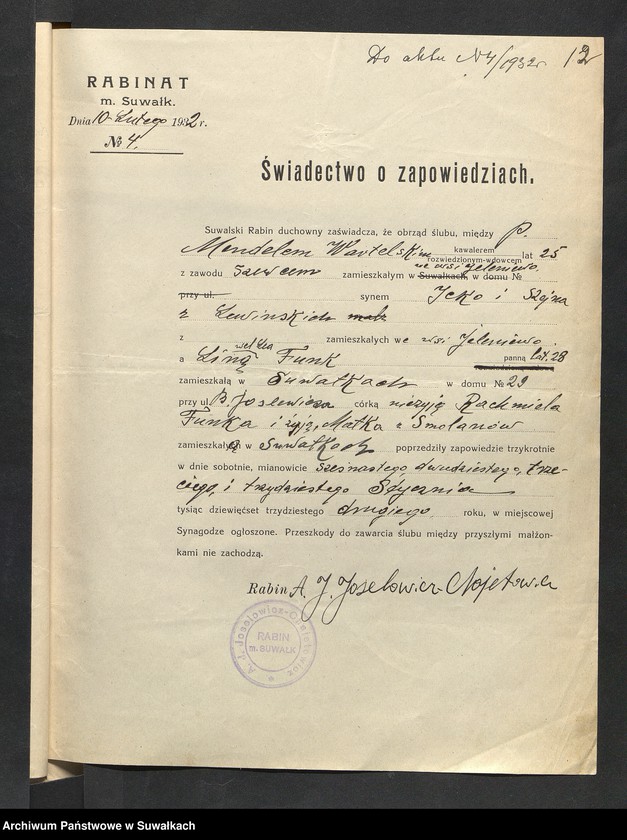 Do aktu N4/1932r. 12
RABINAT
m. Suwałk.
Dnia 10 Lutego 1932 r.
№ 4.
Świadectwo o zapowiedziach.
Suwalski Rabin duchowny zaświadcza, że obrząd ślubu, między P.
Mendelem Wartelskim kawalerem rozwiedzionym-wdowcem lat 25
we wsi Jeleniewo
z zawodu szewcem zamieszkałym w Suwałkach, w domu №
przy ul. synem Icko i
z Lewinskich
z zamieszkałych we wsi Jeleniewo.
a Funk panną lat. 28
zamieszkałą w Suwałkach w domu № 29
przy ul. córką nieżyją Rachmiela
Funka i żyją. Małka z Smolanów
zamieszkałych w Suwałkach poprzedziły zapowiedzie trzykrotnie
w dnie sobotnie, mianowicie szesnastego, dwudziestego, trze-
ciego, i trzydziestego Stycznia
tysiąc dziewięćset trzydziestego drugiego roku, w miejscowej
Synagodze ogłoszone. Przeszkody do zawarcia ślubu między przyszłymi małżon-
kami nie zachodzą.
Rabin A. J. Joselowicz-
A. J. Joselowicz-
RABIN
m. SUWAŁK
Archiwum Państwowe w Suwałkach